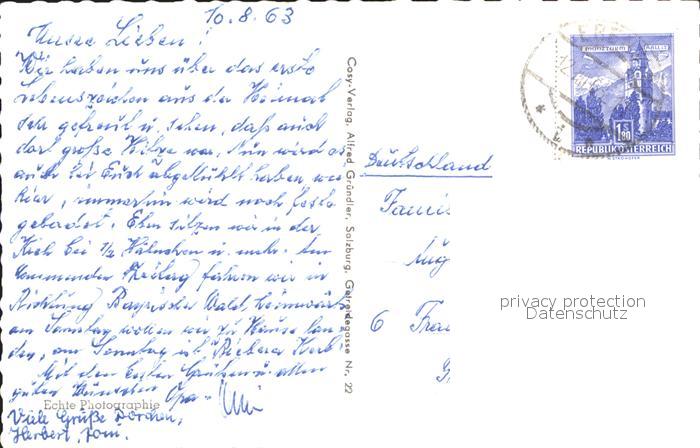 10.8.63
Unsere Lieben!
Wir haben uns über das erste
Lebenszeichen aus der Heimat
sehr gefreut u. sehen, daß auch
dort große Hitze war. Nun wird es
auch bei Euch abgekühlt haben wie
hier, immerhin wird noch feste
gebadet. Eben sitzen wir in der
bei 1/2 u. mehr. Am
kommenden Freitag fahren wir in
Richtung Bayrischer Wald, heimwärts
am Samstag wollen wir zu Hause lan-
den, am Sonntag ist Kerb.
Mit den besten Grüßen u. allen
guten Wünschen Opa
Echte Photographie
Viele Grüße Dorchen,
Herbert, Tom.
Cosy-Verlag, Alfred Gründler, Salzburg, Getreidegasse Nr. 22
REPUBLIK ÖSTERREICH
1.80
Deutschland
Famil
Aug
6 Fra
privacy protection
Datenschutz